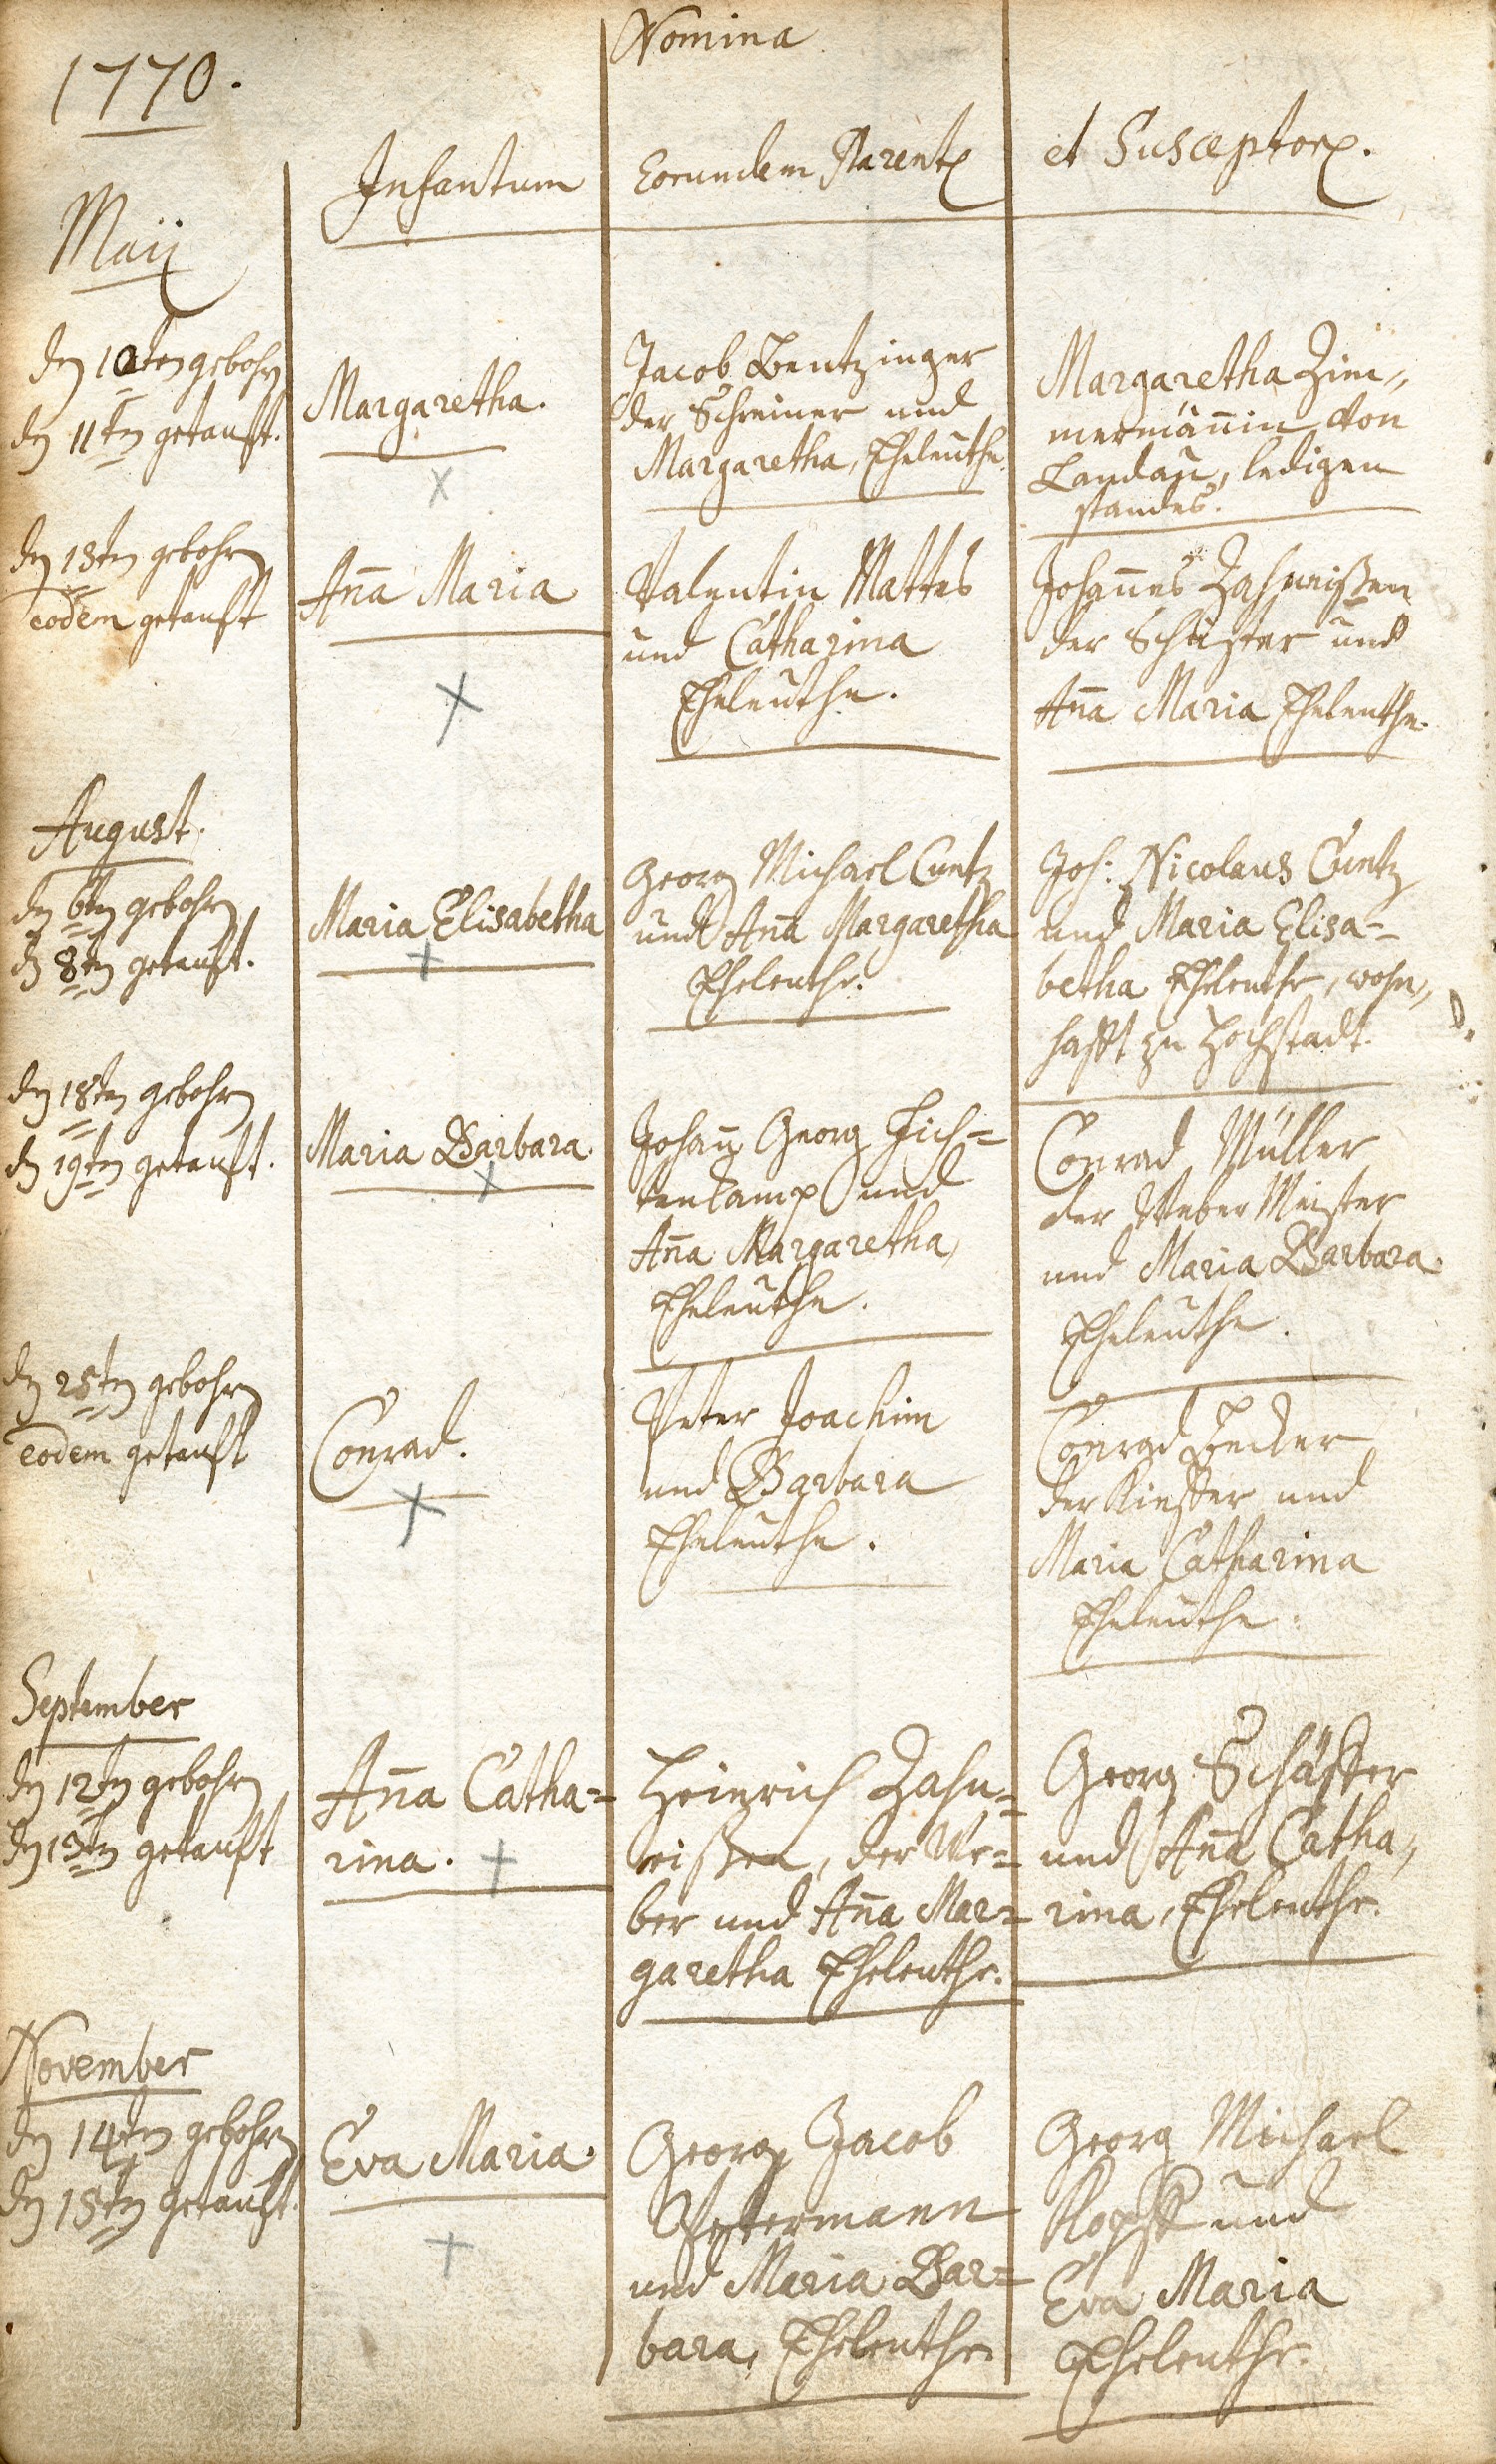 1770.
Nomina
Infantum
Eorundem Parentx
et Susceptorx.
Maij
den 10ten gebohren
den 11ten getauft.
Margaretha.
Jacob Bentzinger
der Schreiner und
Margaretha, Eheleuthe.
Margaretha Zim„
mermännin von
Landau, ledigen
standes.
den 13ten gebohren
eodem getauft
Am̄a Maria
Valentin Mattes
und Catharina
Eheleuthe.
Johannes Zahneißen
der Schuster und
Anna Maria Eheleuthe.
August.
den 6ten gebohren
den 8ten getauft.
Maria Elisabetha
Georg Michael Cuntz
und Anna Margaretha
Eheleuthe.
Joh: Nicolaus Cuntz
und Maria Elisa=
betha Eheleuthe, wohn„
hafft zu Hochstadt.
den 18ten gebohren
den 19ten getauft.
Maria Barbara.
Johann Georg Fich=
tenkamp und
Anna Margaretha,
Eheleuthe.
Conrad Müller
der Weber Meister
und Maria Barbara.
Eheleuthe.
den 25ten gebohren
eodem getauft
Conrad.
Peter Joachim
und Barbara
Eheleuthe.
Conrad Becker
der Kieffer und
Maria Catharina
Eheleuthe.
September
den 12ten gebohren
den 13ten getauft
Anna Catha=
rina.
Heinrich Zahn=
eißen, der We=
ber und Anna Mar=
garetha Eheleuthe.
Georg Schäffer
und Anna Catha„
rina, Eheleuthe.
November
den 14ten gebohren
den 15ten getauft.
Eva Maria.
Georg Jacob
Petermann
und Maria Bar=
bara, Eheleuthe
Georg Michael
Kopff und
Eva Maria
Eheleuthe.